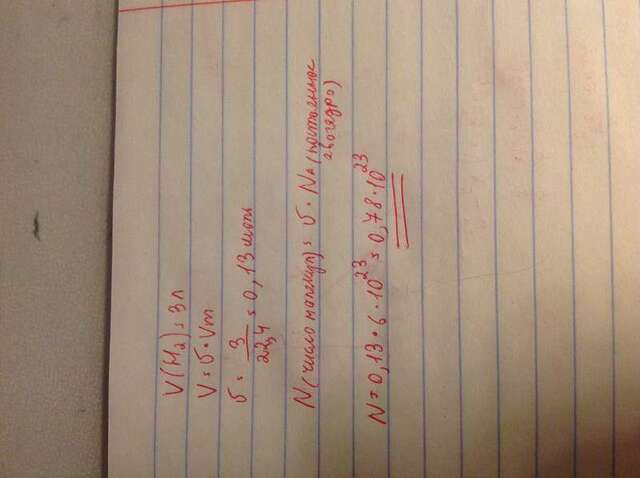 V(H₂) = 3л
V = υ · Vm
υ = 3/22,4 = 0,13 моль
N (число молекул) = υ · Nₐ (постоянное
авогадро)
N = 0,13 · 6 · 10²³ = 0,78 · 10²³